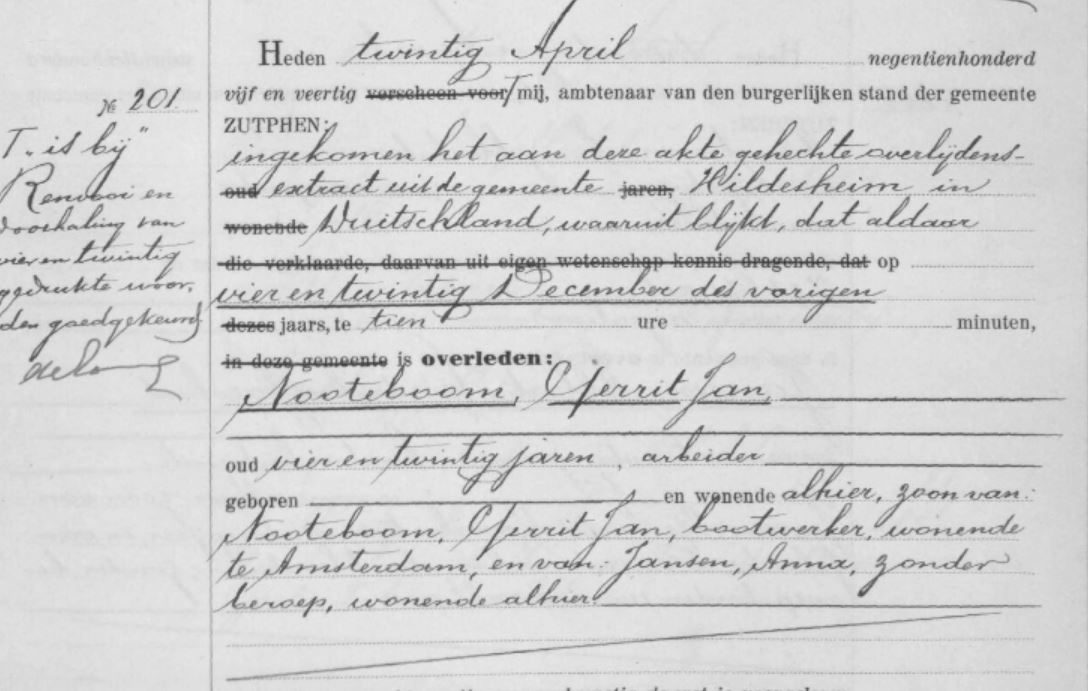 Heden twintig April negentienhonderd
vijf en veertig verscheen voor T mij, ambtenaar van den burgerlijken stand der gemeente
№ 201.
ZUTPHEN:
T. is bij
ingekomen het aan deze akte gehechte overlijdens-
Renvooi en
oud extract uit de gemeente jaren, Hildesheim in
doorhaling van
wonende Duitschland, waaruit blijkt, dat aldaar
vier en twintig
die verklaarde, daarvan uit eigen wetenschap kennis dragende, dat op
gedrukte woor-
vier en twintig December des vorigen
den goedgekeurd
dezes jaars, te tien ure minuten,
in deze gemeente is overleden:
Nooteboom, Gerrit Jan,
oud vier en twintig jaren, arbeider
geboren en wonende alhier, zoon van:
Nooteboom, Gerrit Jan, bootwerker, wonende
te Amsterdam, en van: Jansen, Anna, zonder
beroep, wonende alhier.